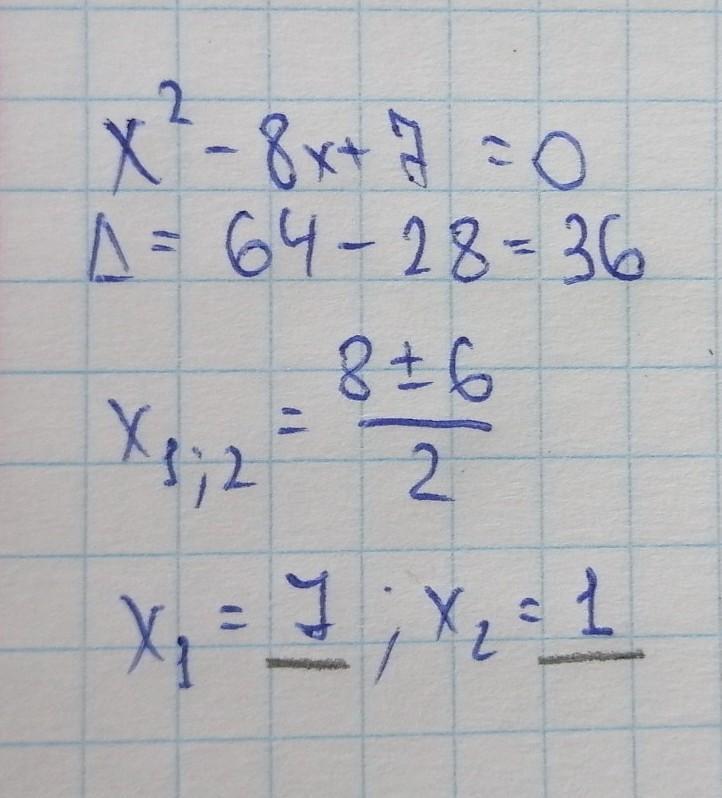 x² - 8x + 7 = 0
Δ = 64 - 28 = 36
x₁;₂ = (8 ± 6)/2
x₁ = 7 ; x₂ = 1